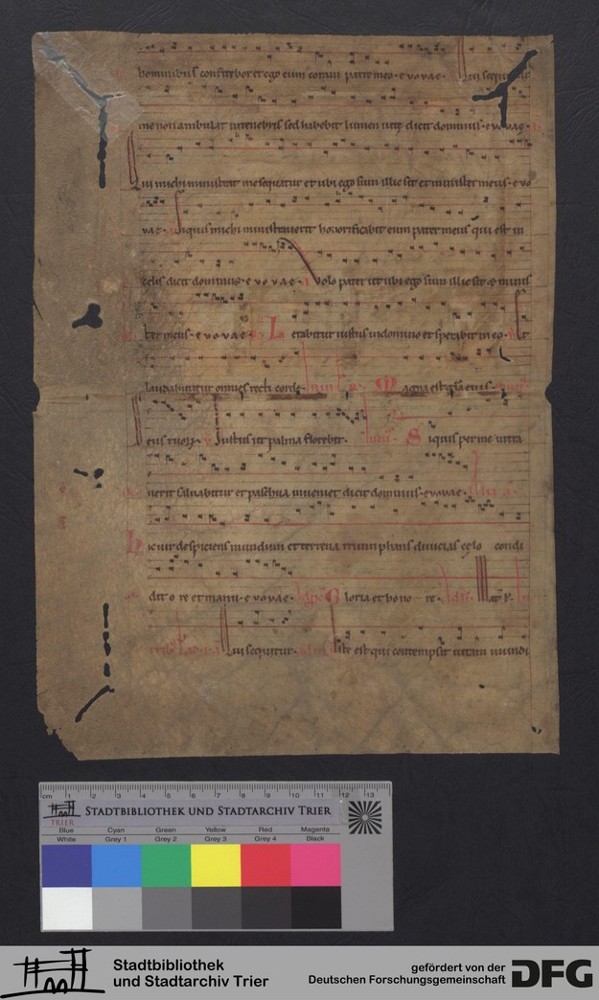 hominibus confitebor et ego eum coram patre meo. e v o v a e. Qui sequitur
me non ambulat in tenebris sed habebit lumen vite dicit dominus. e v o v a e.
Qui michi ministrat me sequatur et ubi ego sum illic sit et minister meus. e v o
v a e. Siquis michi ministraverit honorificabit eum pater meus qui est in
celis dicit dominus. e v o v a e. Volo pater ut ubi ego sum illic sit et minis
ter meus. e v o v a e. Letabitur iustus in domino et sperabit in eo. Et
laudabuntur omnes recti corde. Magna est gla eius.
Iustus ut palma florebit. Siquis per me intra
verit salvabitur et pascua inveniet dicit dominus. e v o v a e.
Hic vir despiciens mundum et terrena triumphans divicias celo condi
dit ore et manu. e v o v a e. Gloria et hono re.
Qui sequitur. Iste est qui contempsit vitam mundi
cm 1 2 3 4 5 6 7 8 9 10 11 12 13
TRIER
STADTBIBLIOTHEK UND STADTARCHIV TRIER
Blue Cyan Green Yellow Red Magenta
White Grey 1 Grey 2 Grey 3 Grey 4 Black
Stadtbibliothek
und Stadtarchiv Trier
gefördert von der
Deutschen Forschungsgemeinschaft
DFG